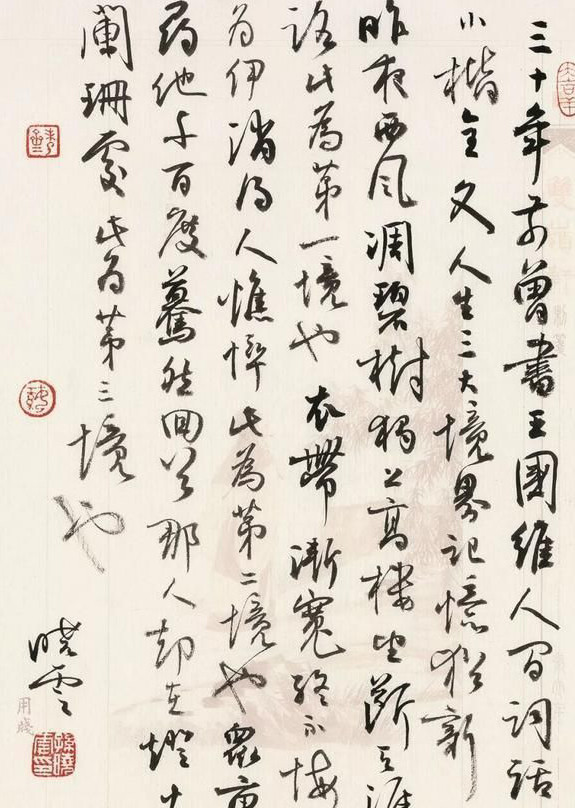 三十年前曾書王國維人間詞話
小楷全文人生三大境界記憶猶新
昨夜西風凋碧樹獨上高樓望斷天涯
路此為第一境也衣帶漸寬終不悔
為伊消得人憔悴此為第二境也眾裏
尋他千百度驀然回首那人卻在燈火
闌珊處此為第三境也
曉雲
用箋